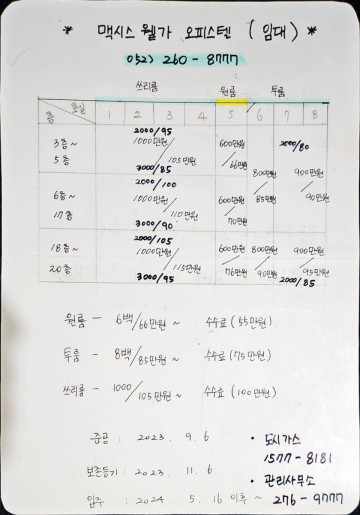 * 맥시스 웰가 오피스텔 ( 임대 ) *
052) 260 - 8777
쓰리룸 원룸 투룸
층 호실 1 2 3 4 5 6 7 8
3층~ 5층 2000/95 1000만원/105만원 3000/85 600만원/66만원 800만원/85만원 2000/80 900만원/90만원
6층~ 17층 2000/100 1000만원/110만원 3000/90 600만원/70만원
18층~ 20층 2000/105 1000만원/115만원 3000/95 600만원/76만원 800만원/90만원 900만원/95만원 2000/85
원룸 - 6백/66만원 ~ 수수료 (55만원)
투룸 - 8백/85만원 ~ 수수료 (75만원)
쓰리룸 - 1000/105만원 ~ 수수료 (100만원)
준공 : 2023. 9. 6
보존등기 : 2023. 11. 6
입주 : 2024. 5. 16 이후 ~
• 도시가스
1577 - 8181
• 관리사무소
276 - 9777